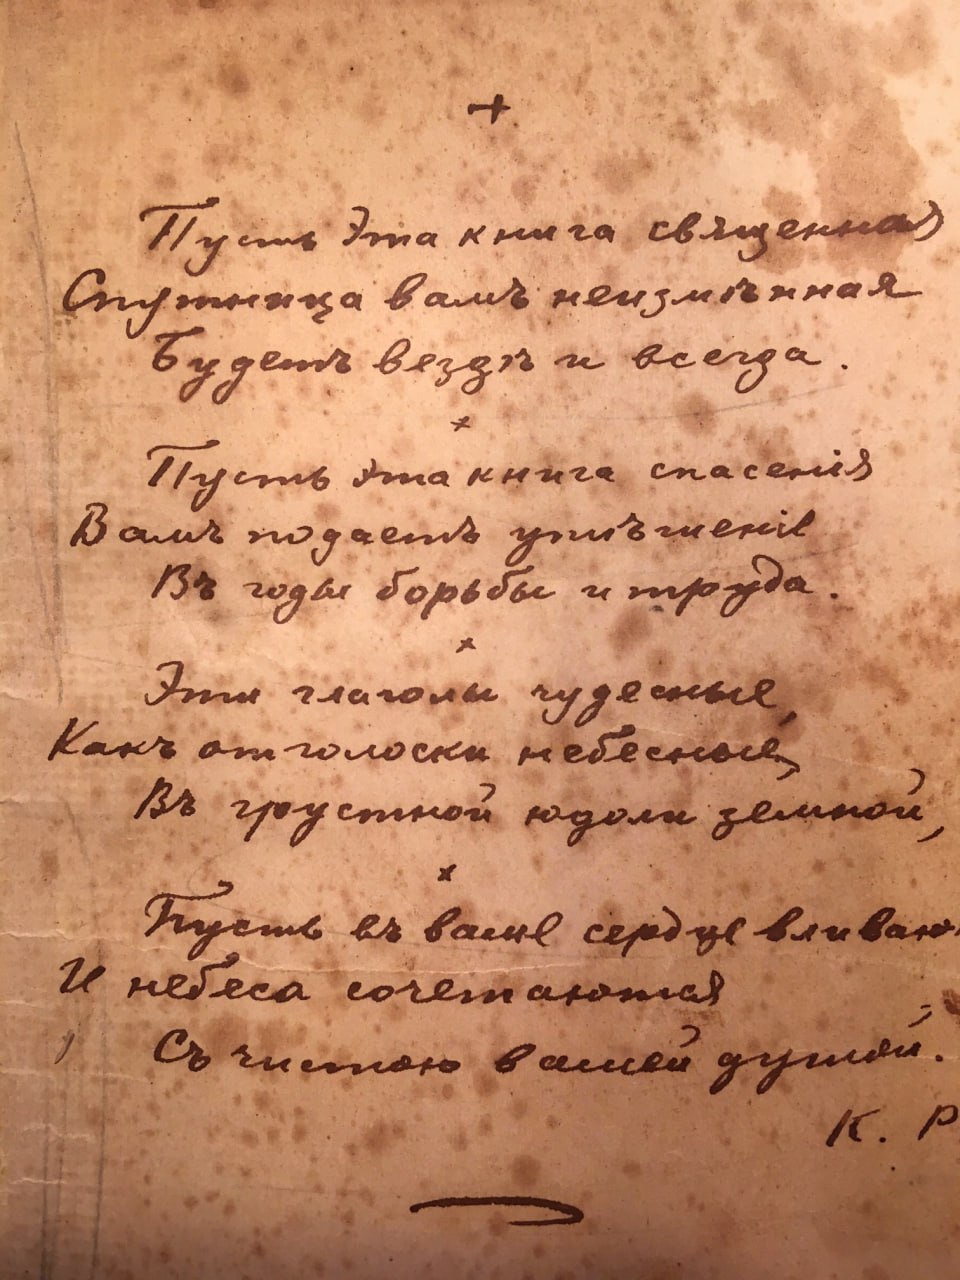 +
Пусть эта книга священная
Спутница вамъ неизмѣнная
Будетъ вездѣ и всегда.
×
Пусть эта книга спасенія
Вамъ подаетъ утѣшеніе
Въ годы борьбы и труда.
×
Эти глаголы чудесные,
Какъ отголоски небесные,
Въ грустной юдоли земной,
×
Пусть въ ваше сердце вливаю
И небеса сочетаются
Съ чистою вашей душой.
К. Р